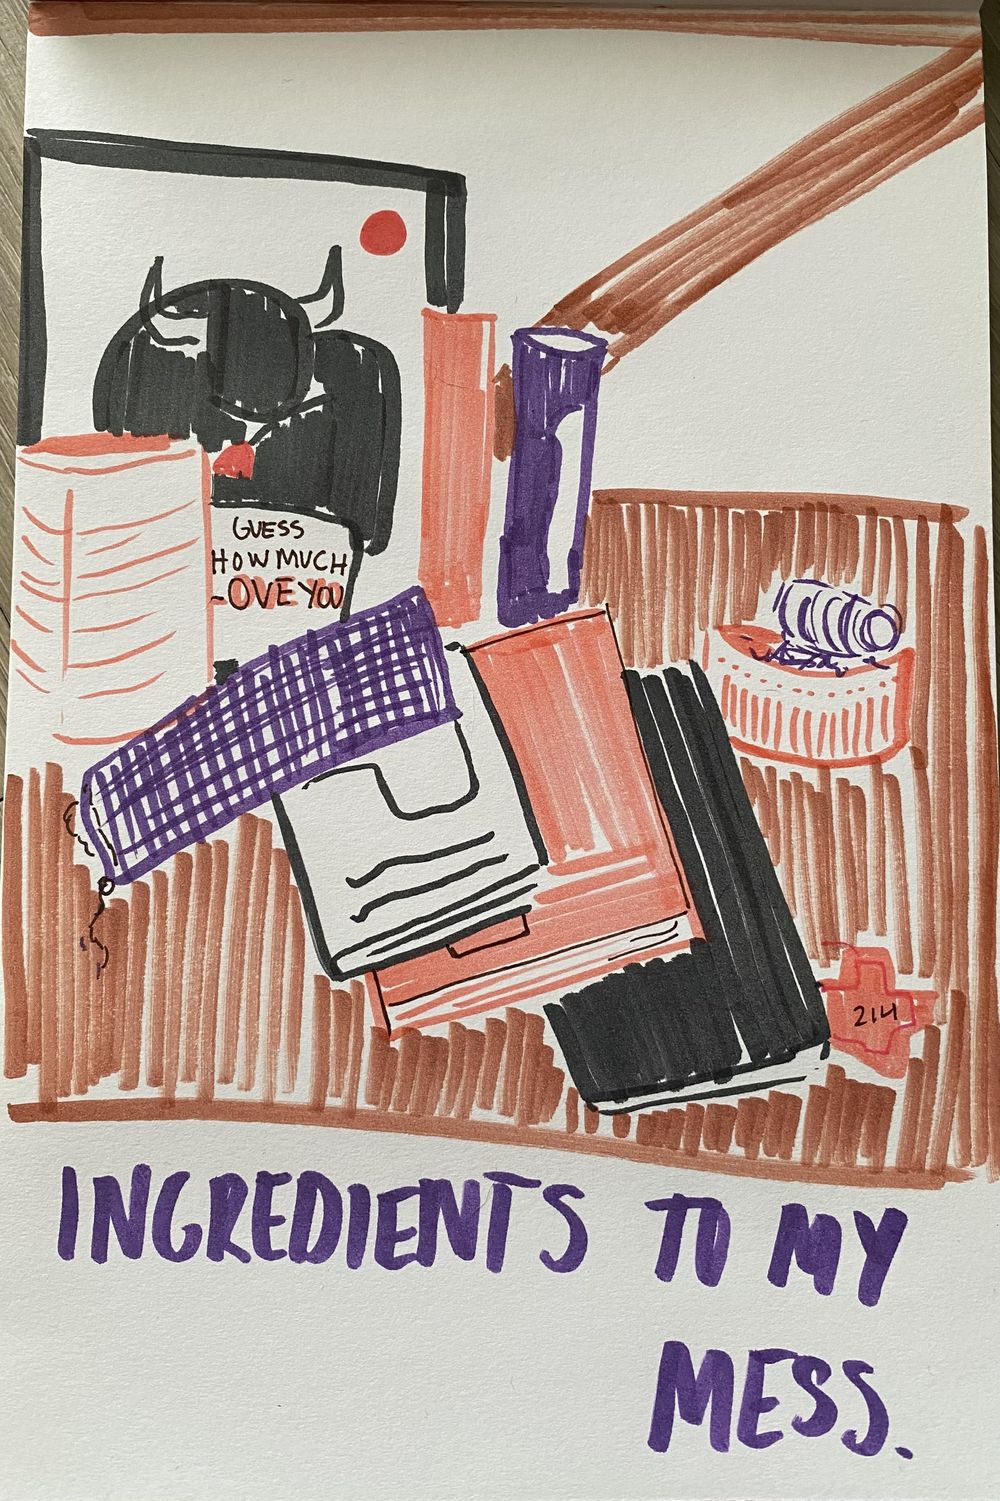 GUESS
HOW MUCH
-OVE YOU
214
INGREDIENTS TO MY
MESS.